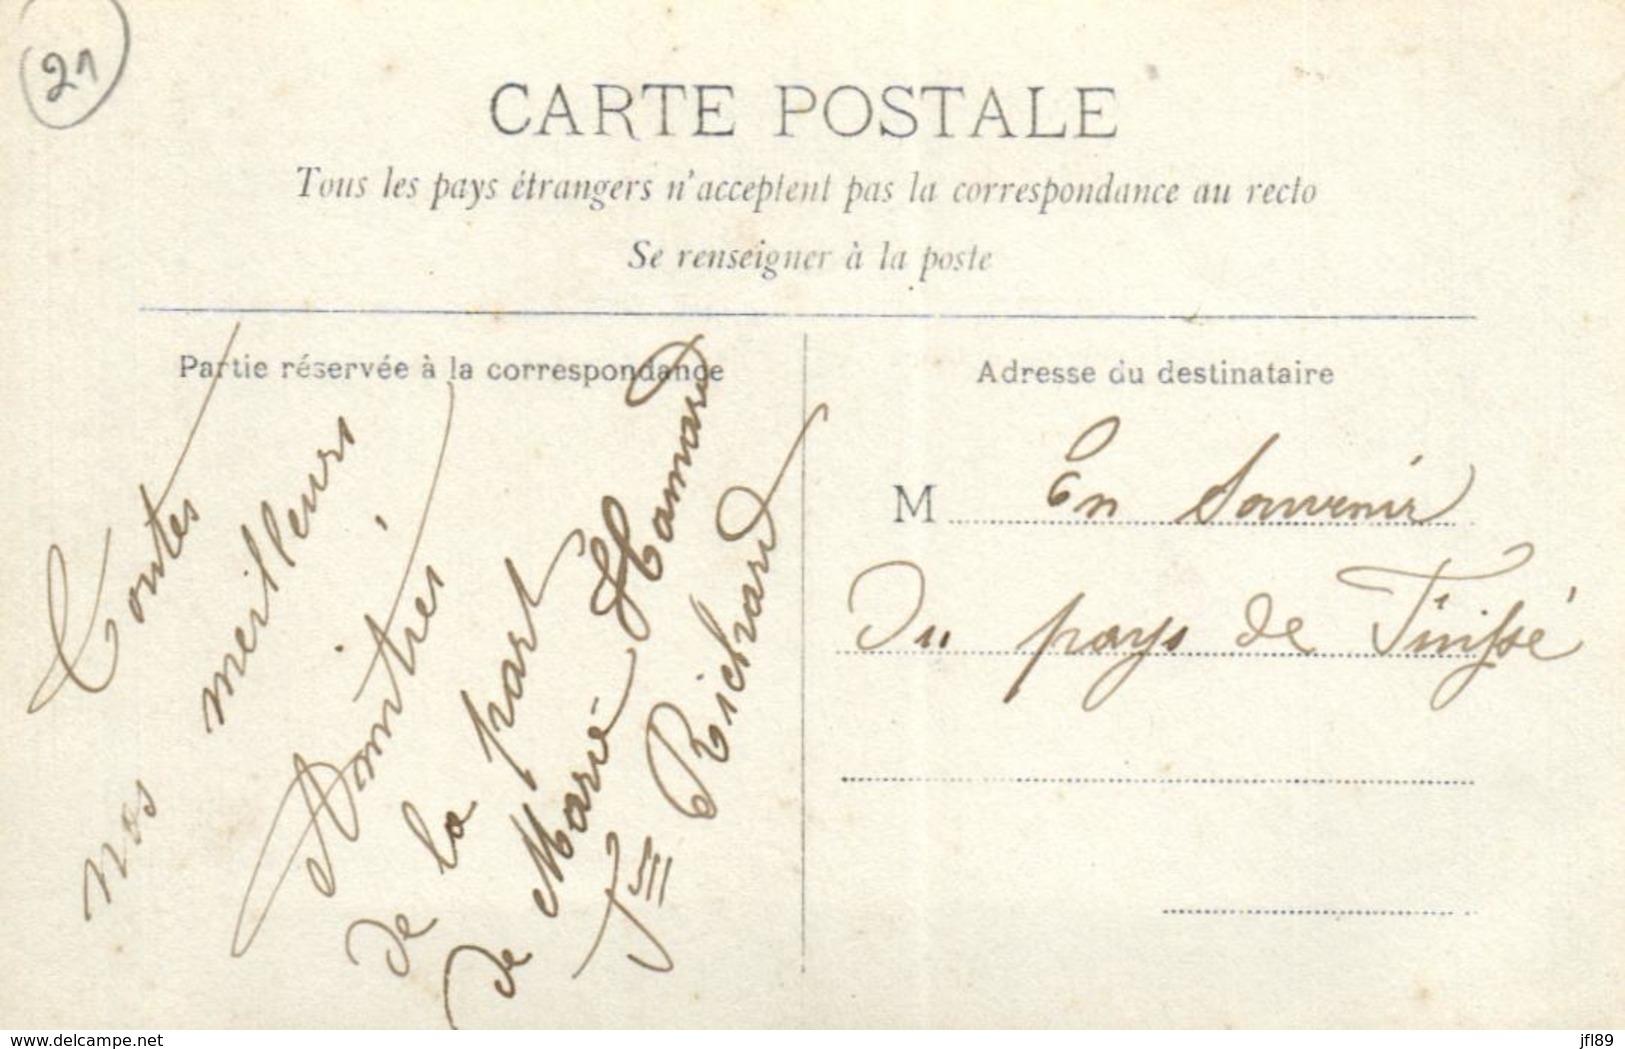 21
CARTE POSTALE
Tous les pays étrangers n'acceptent pas la correspondance au recto
Se renseigner à la poste
Partie réservée à la correspondance
Toutes
nos meilleurs
Amitiés
de la part
de Marie Hamard
Vve Richard
Adresse du destinataire
M En Souvenir
Du pays de
www.delcampe.net
jfl89